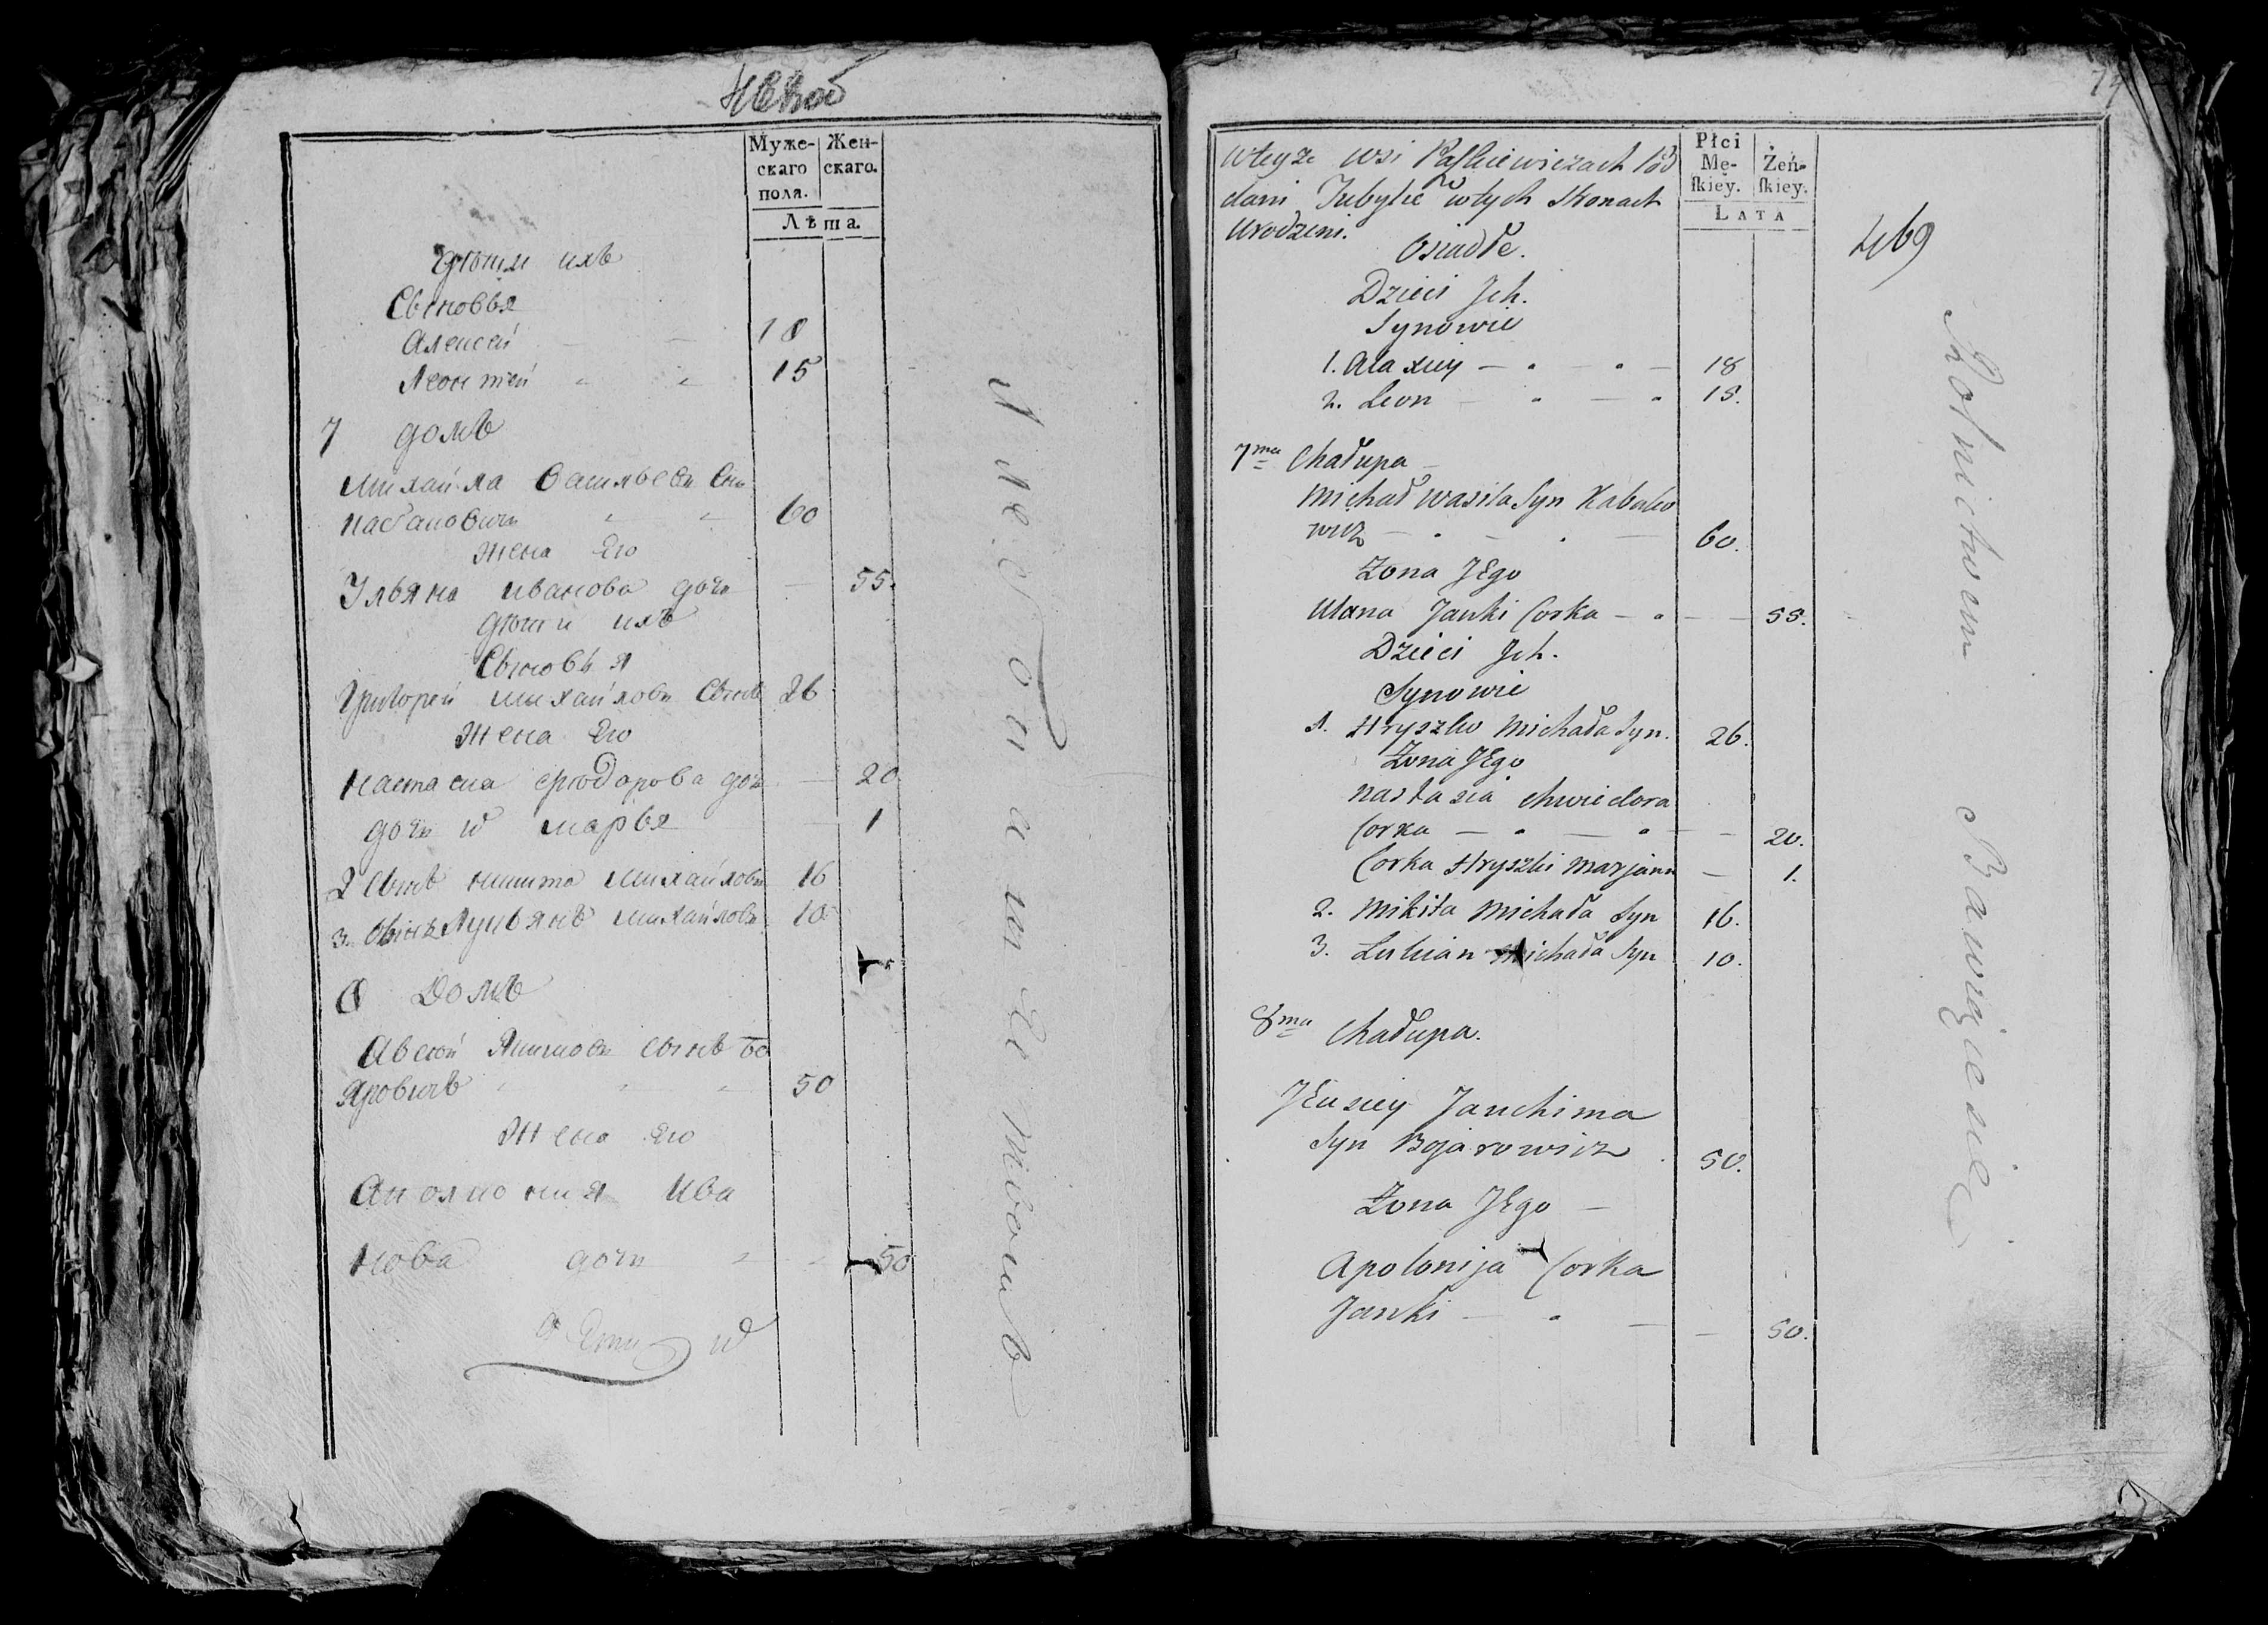 Муже-
скаго
пола.
Жен-
скаго.
Лѣта.
дѣти ихъ
Сыновья
Алексей 18
Леонтей 15
7 домъ
Михайла Васильевъ Сы
60
Жена Его
Ульяна Иванова дочь 55.
дѣти ихъ
Сыновья
Григорей Михайловъ Сынъ 26
Жена Его
Настасиа Фюдорова доч 20
дочь Марья 1
2 Сынъ Никита Михайловъ 16
3. Сынъ Лукьянъ Михайловъ 10
8 Домъ
Авсей Якимовъ Сынъ Бо
яровичъ 50
Жена Его
Аполиония Ива
нова дочь 50
Хлебопашествомъ
74
469
w teyże wsi Paſkiewiczach Pod
dani Tubylce w tych Stronach
Urodzeni.
Osiadłe.
Płci
Mę-
ſkiey.
Żeń-
ſkiey.
LATA
Dzieci Jch.
Synowie
1. Alaxiey — 18
2. Leon — 15.
7ma Chałupa
Michał Wasila Syn Kabako
wicz — 60.
Żona JEgo
Ulana Janki Corka — 55.
Dzieci Jch.
Synowie
1. Hryszko Michała Syn. 26.
Żona JEgo
Nastazia Chwiedora
Corka — 20.
Corka Hryszki Marjana — 1.
2. Mikita Michała Syn 16.
3. Lukian Michała Syn 10.
8ma Chałupa.
Jauchima
Syn Bojarowicz 50.
Żona JEgo —
Apolonija Corka
Janki — 50.
Rolnictwem Bawią się